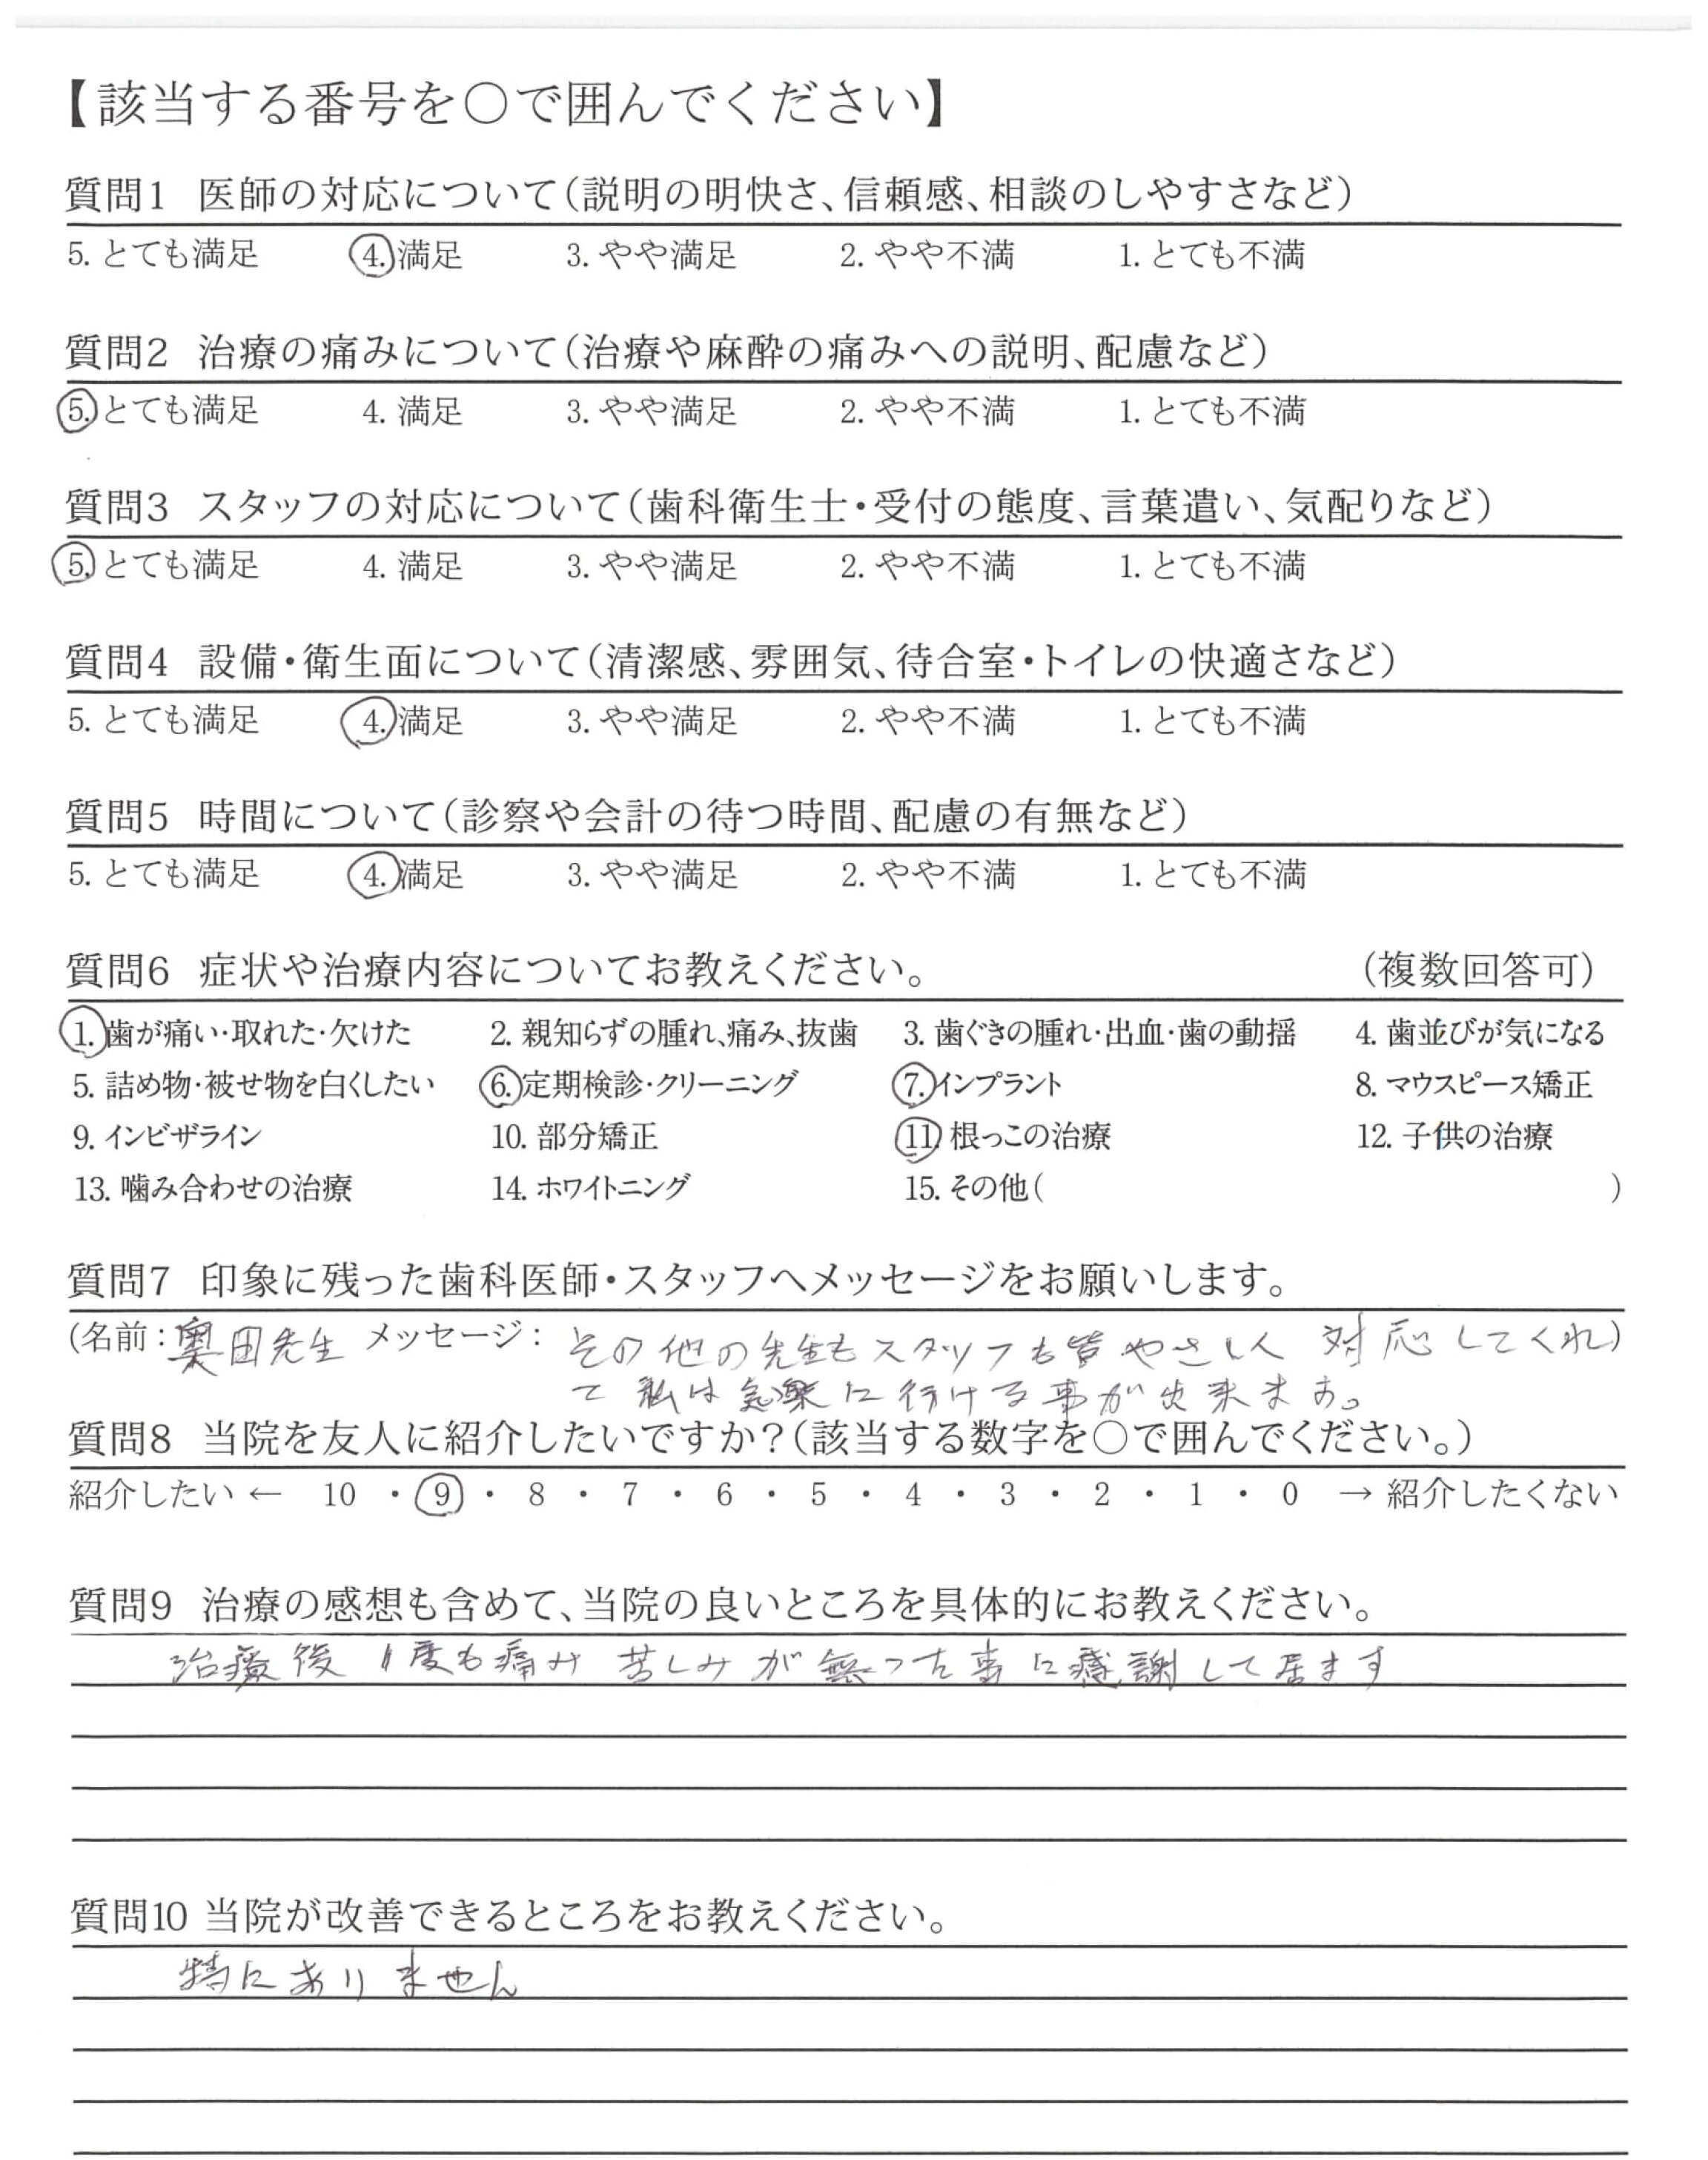 【該当する番号を○で囲んでください】
質問1 医師の対応について(説明の明快さ、信頼感、相談のしやすさなど)
5. とても満足 4. 満足 3. やや満足 2. やや不満 1. とても不満
質問2 治療の痛みについて(治療や麻酔の痛みへの説明、配慮など)
5. とても満足 4. 満足 3. やや満足 2. やや不満 1. とても不満
質問3 スタッフの対応について(歯科衛生士・受付の態度、言葉遣い、気配りなど)
5. とても満足 4. 満足 3. やや満足 2. やや不満 1. とても不満
質問4 設備・衛生面について(清潔感、雰囲気、待合室・トイレの快適さなど)
5. とても満足 4. 満足 3. やや満足 2. やや不満 1. とても不満
質問5 時間について(診察や会計の待つ時間、配慮の有無など)
5. とても満足 4. 満足 3. やや満足 2. やや不満 1. とても不満
質問6 症状や治療内容についてお教えください。 (複数回答可)
1. 歯が痛い・取れた・欠けた 2. 親知らずの腫れ、痛み、抜歯 3. 歯ぐきの腫れ・出血・歯の動揺 4. 歯並びが気になる
5. 詰め物・被せ物を白くしたい 6. 定期検診・クリーニング 7. インプラント 8. マウスピース矯正
9. インビザライン 10. 部分矯正 11. 根っこの治療 12. 子供の治療
13. 噛み合わせの治療 14. ホワイトニング 15. その他( )
質問7 印象に残った歯科医師・スタッフへメッセージをお願いします。
(名前:奥田先生 メッセージ: その他の先生もスタッフも皆やさしく 対応してくれ)
て 私は気楽に行ける事が出来ます。
質問8 当院を友人に紹介したいですか?(該当する数字を○で囲んでください。)
紹介したい ← 10 ・ 9 ・ 8 ・ 7 ・ 6 ・ 5 ・ 4 ・ 3 ・ 2 ・ 1 ・ 0 → 紹介したくない
質問9 治療の感想も含めて、当院の良いところを具体的にお教えください。
治療後 1度も痛み 苦しみが無った事に感謝して居ます
質問10 当院が改善できるところをお教えください。
特にありません